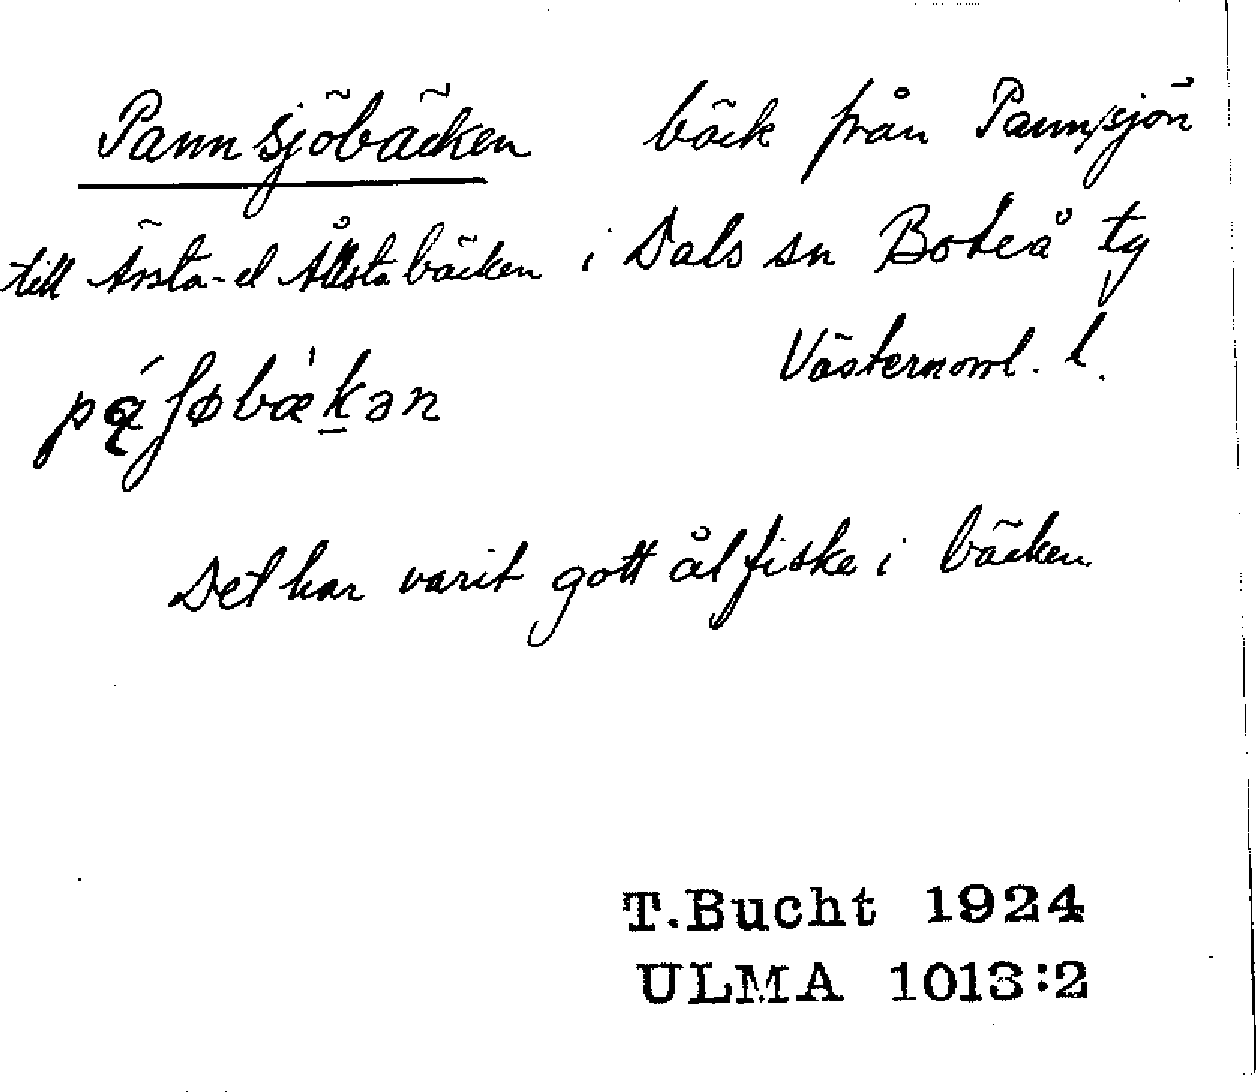 Pannsjöbäcken bäck från Pannsjön
till Ärsta- el Ållsta bäcken i Dals sn Boteå tg
Västernorrl. l.
pą́ʃøbæ̀k̠ən
Det har varit gott ålfiske i bäcken
T.Bucht 1924
ULMA 1013:2